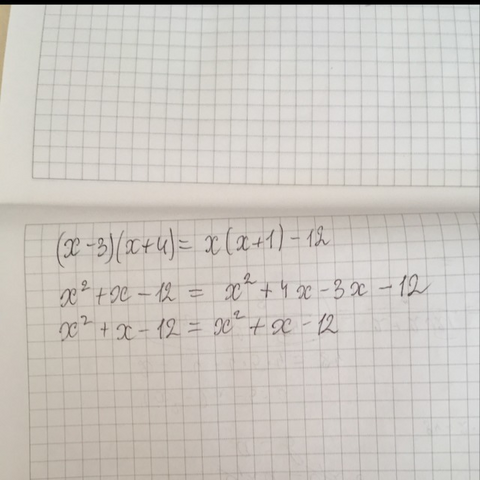 (x-3)(x+4) = x(x+1)-12
x² + x - 12 = x² + 4x - 3x - 12
x² + x - 12 = x² + x - 12